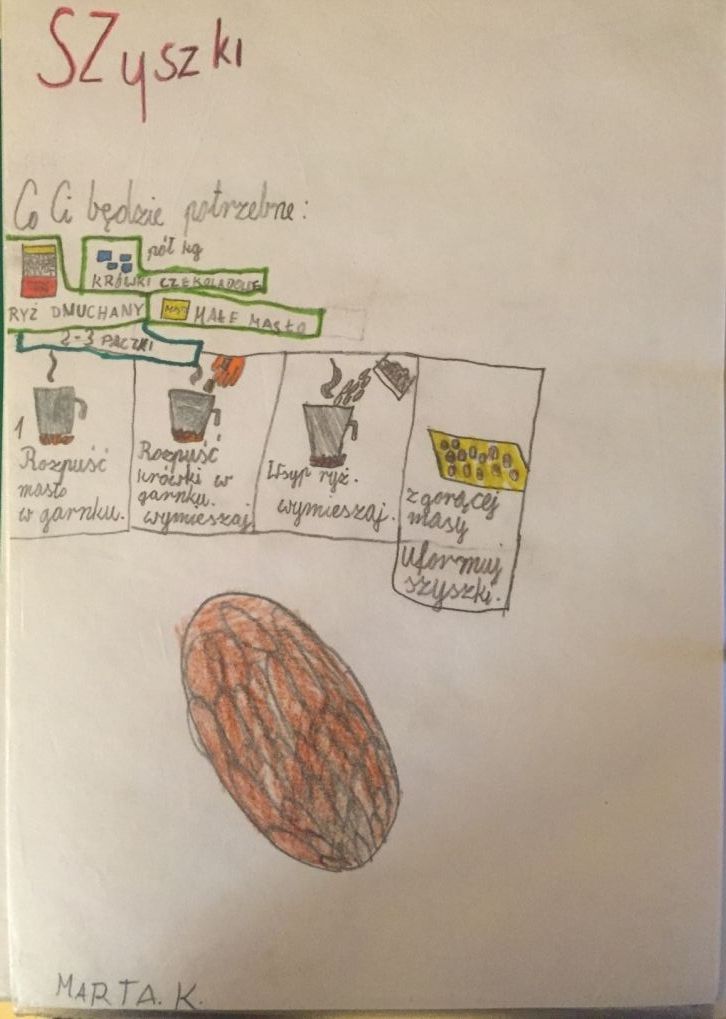 SZyszki
Co Ci będzie potrzebne:
pół kg
KRÓWKI CZEKOLADOWE
RYŻ DMUCHANY
MAŁE MASŁO
2-3 PACZKI
1
Rozpuść
masło
w garnku.
Rozpuść
krówki w
garnku.
wymieszaj.
Wsyp ryż.
wymieszaj.
z gorącej
masy
Uformuj
szyszki.
MARTA. K.